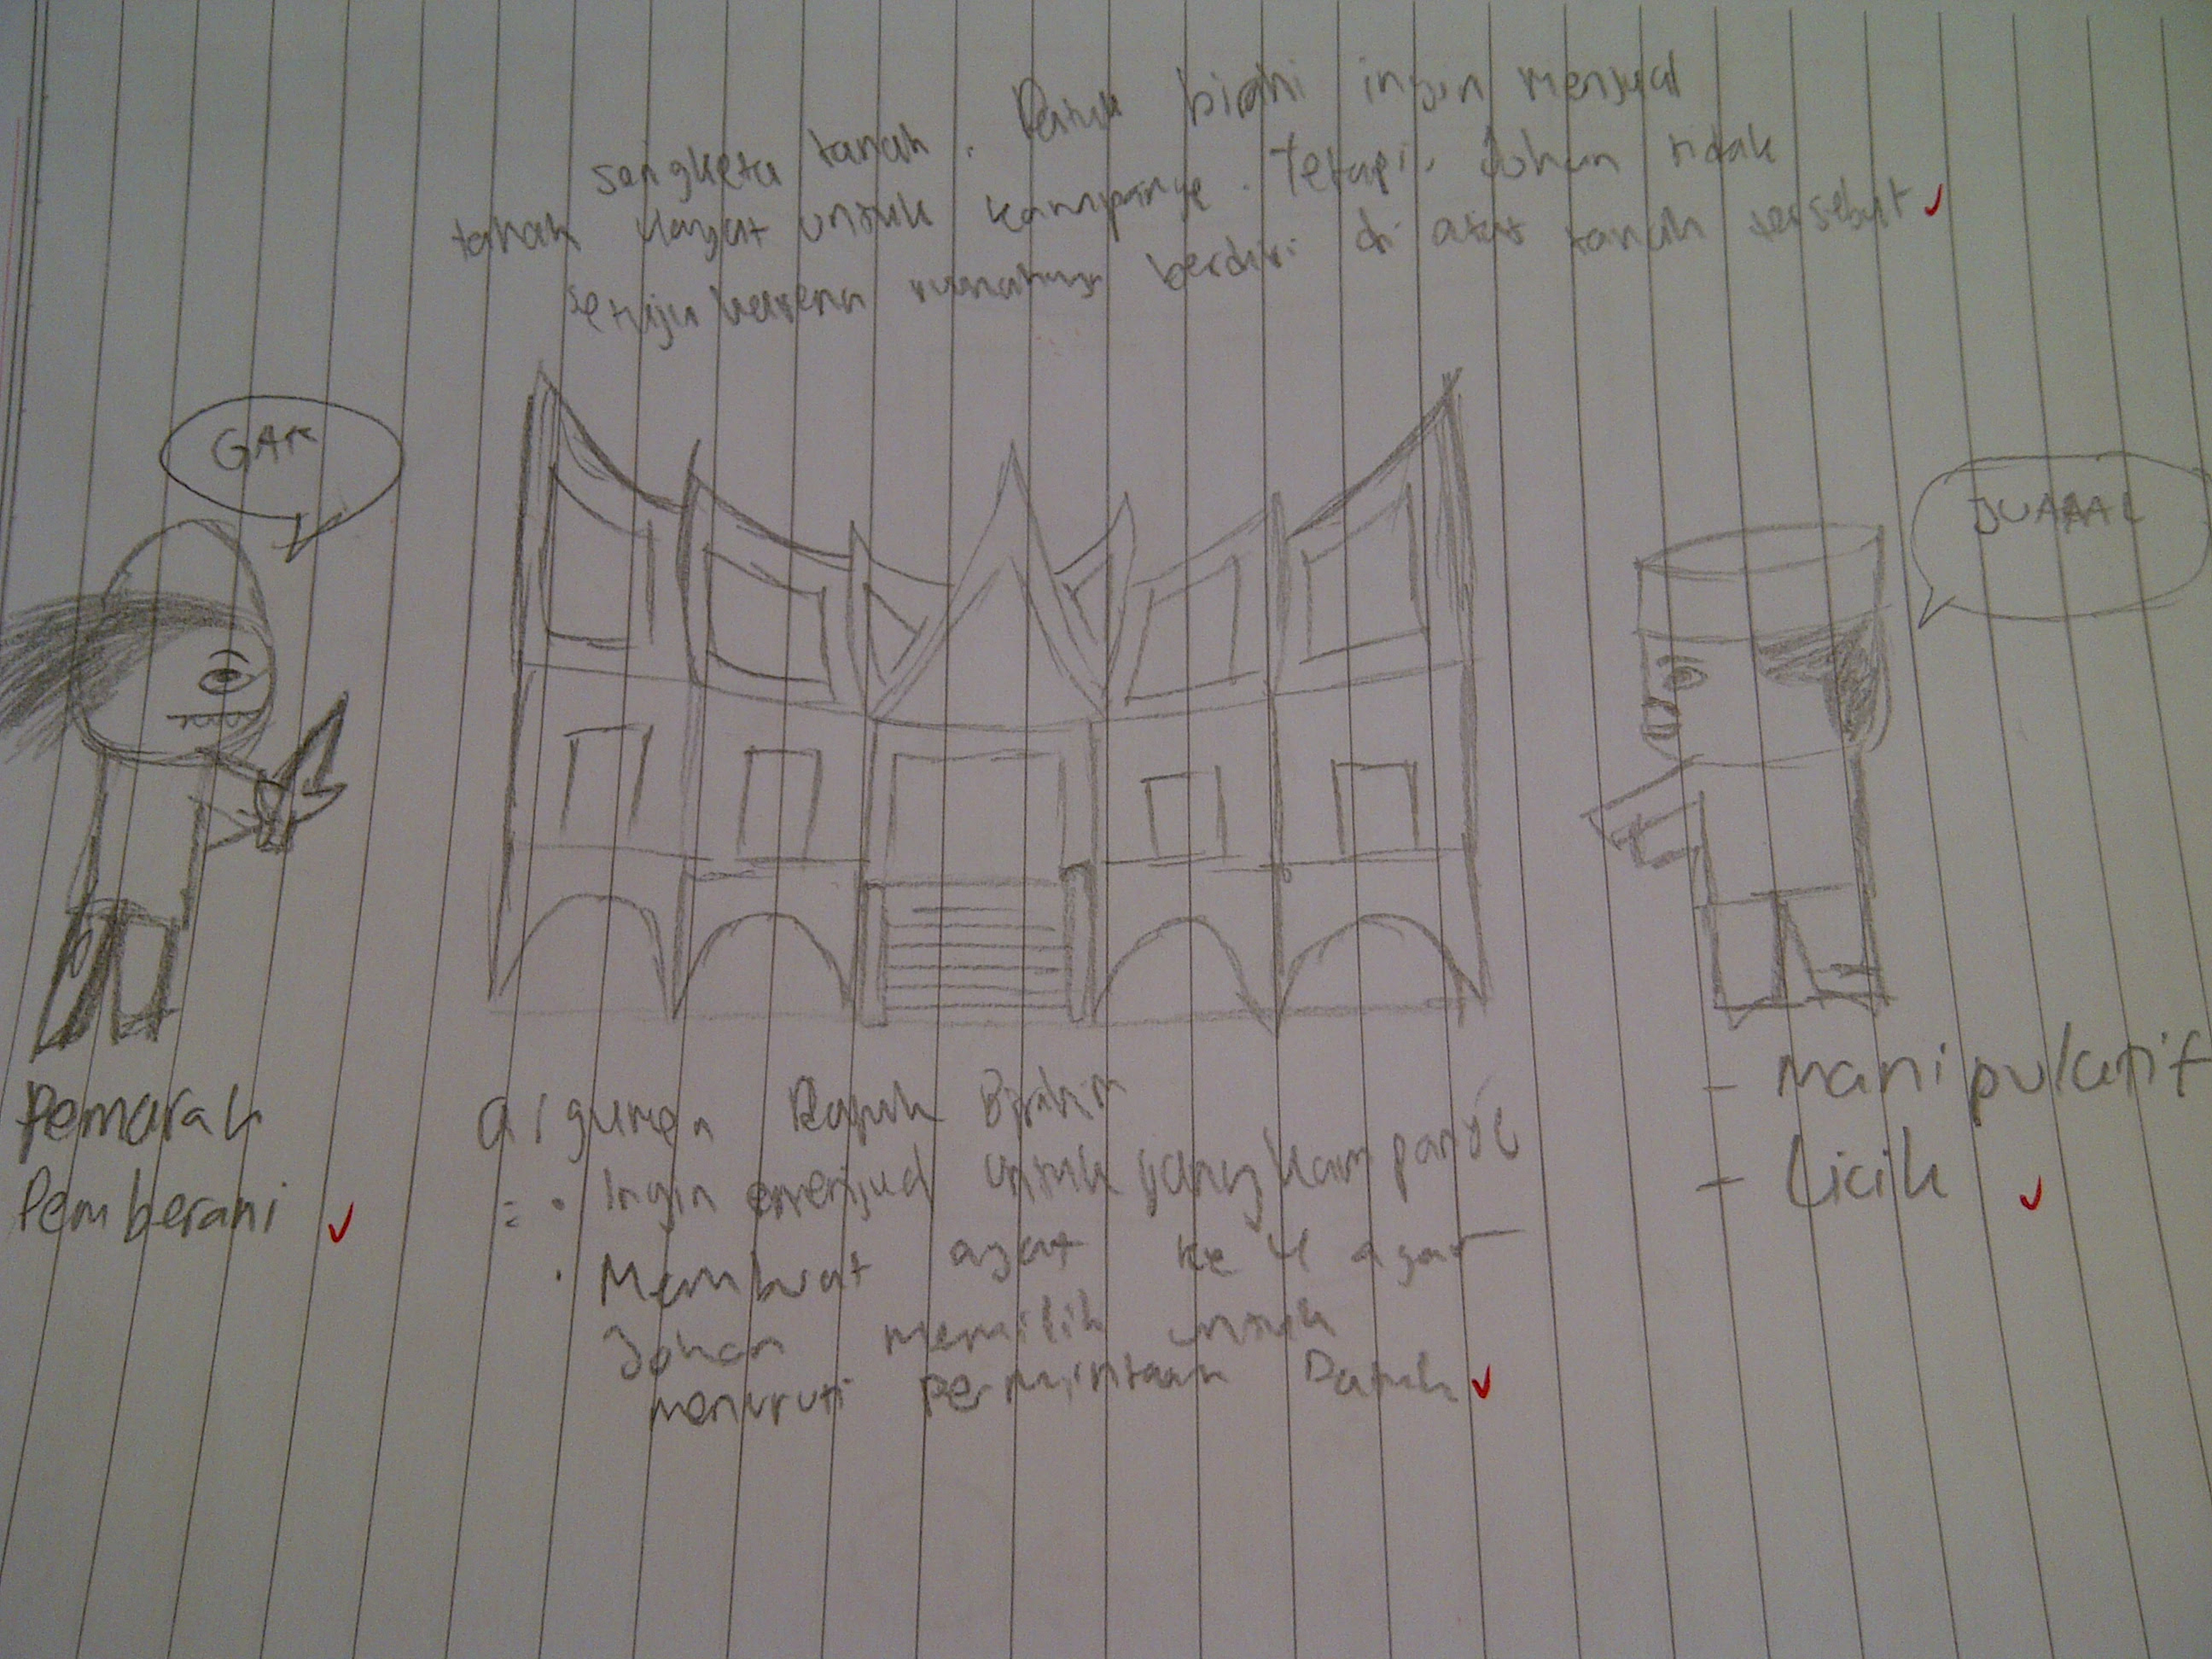 sengketa tanah. Datuk ingin menjual
tanah ulayat untuk kampanye. Tetapi, Johan tidak
setuju karena rumahnya berdiri di atas tanah tersebut
GAK
JUAAAL
Pemarah
Pemberani
- Manipulatif
- Licik
argumen
= • Ingin untuk kampanye
• Membuat ayat ke 4 agar
Johan memilih untuk
menuruti permintaan Datuk